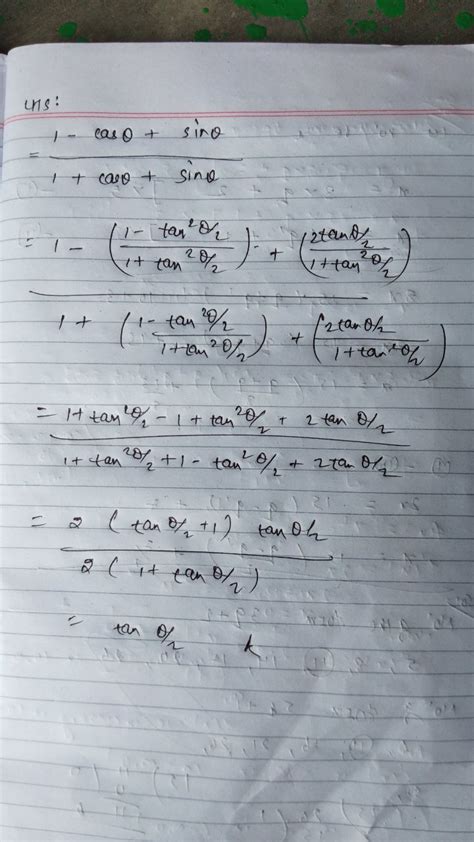 LHS:
= 1 - cosθ + sinθ / 1 + cosθ + sinθ
= 1 - (1 - tan²θ/2 / 1 + tan²θ/2) + (2tanθ/2 / 1+tan²θ/2)
1 + (1 - tan²θ/2 / 1+tan²θ/2) + (2tanθ/2 / 1+tan²θ/2)
= 1+tan²θ/2 - 1 + tan²θ/2 + 2 tan θ/2
1 + tan²θ/2 + 1 - tan²θ/2 + 2tan θ/2
= 2 (tanθ/2 + 1) tanθ/2
2 ( 1 + tan θ/2)
= tan θ/2